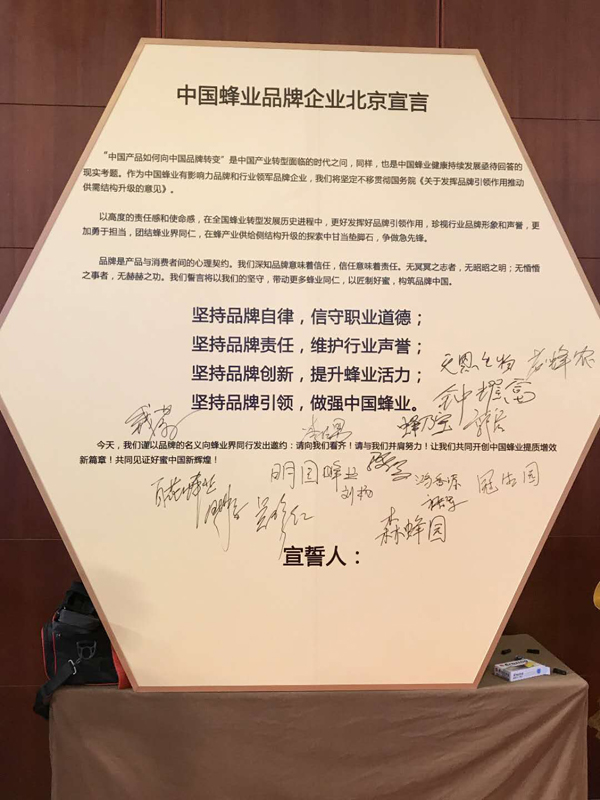 中国蜂业品牌企业北京宣言
“中国产品如何向中国品牌转变”是中国产业转型面临的时代之问，同样，也是中国蜂业健康持续发展亟待回答的
现实考题。作为中国蜂业有影响力品牌和行业领军品牌企业，我们将坚定不移贯彻国务院《关于发挥品牌引领作用推动
供需结构升级的意见》。
以高度的责任感和使命感，在全国蜂业转型发展历史进程中，更好发挥好品牌引领作用，珍视行业品牌形象和声誉，更
加勇于担当，团结蜂业界同仁，在蜂产业供给侧结构升级的探索中甘当垫脚石，争做急先锋。
品牌是产品与消费者间的心理契约。我们深知品牌意味着信任，信任意味着责任。无冥冥之志者，无昭昭之明；无惛惛
之事者，无赫赫之功。我们誓言将以我们的坚守，带动更多蜂业同仁，以匠制好蜜，构筑品牌中国。
坚持品牌自律，信守职业道德；
坚持品牌责任，维护行业声誉；
坚持品牌创新，提升蜂业活力；
坚持品牌引领，做强中国蜂业。
天恩生物 老蜂农
今天，我们谨以品牌的名义向蜂业界同行发出邀约：请向我们看齐！请与我们并肩努力！让我们共同开创中国蜂业提质增效
新篇章！共同见证好蜜中国新辉煌！
明园蜂业
刘扬
冠生园
百花蜂业
森蜂园
宣誓人：